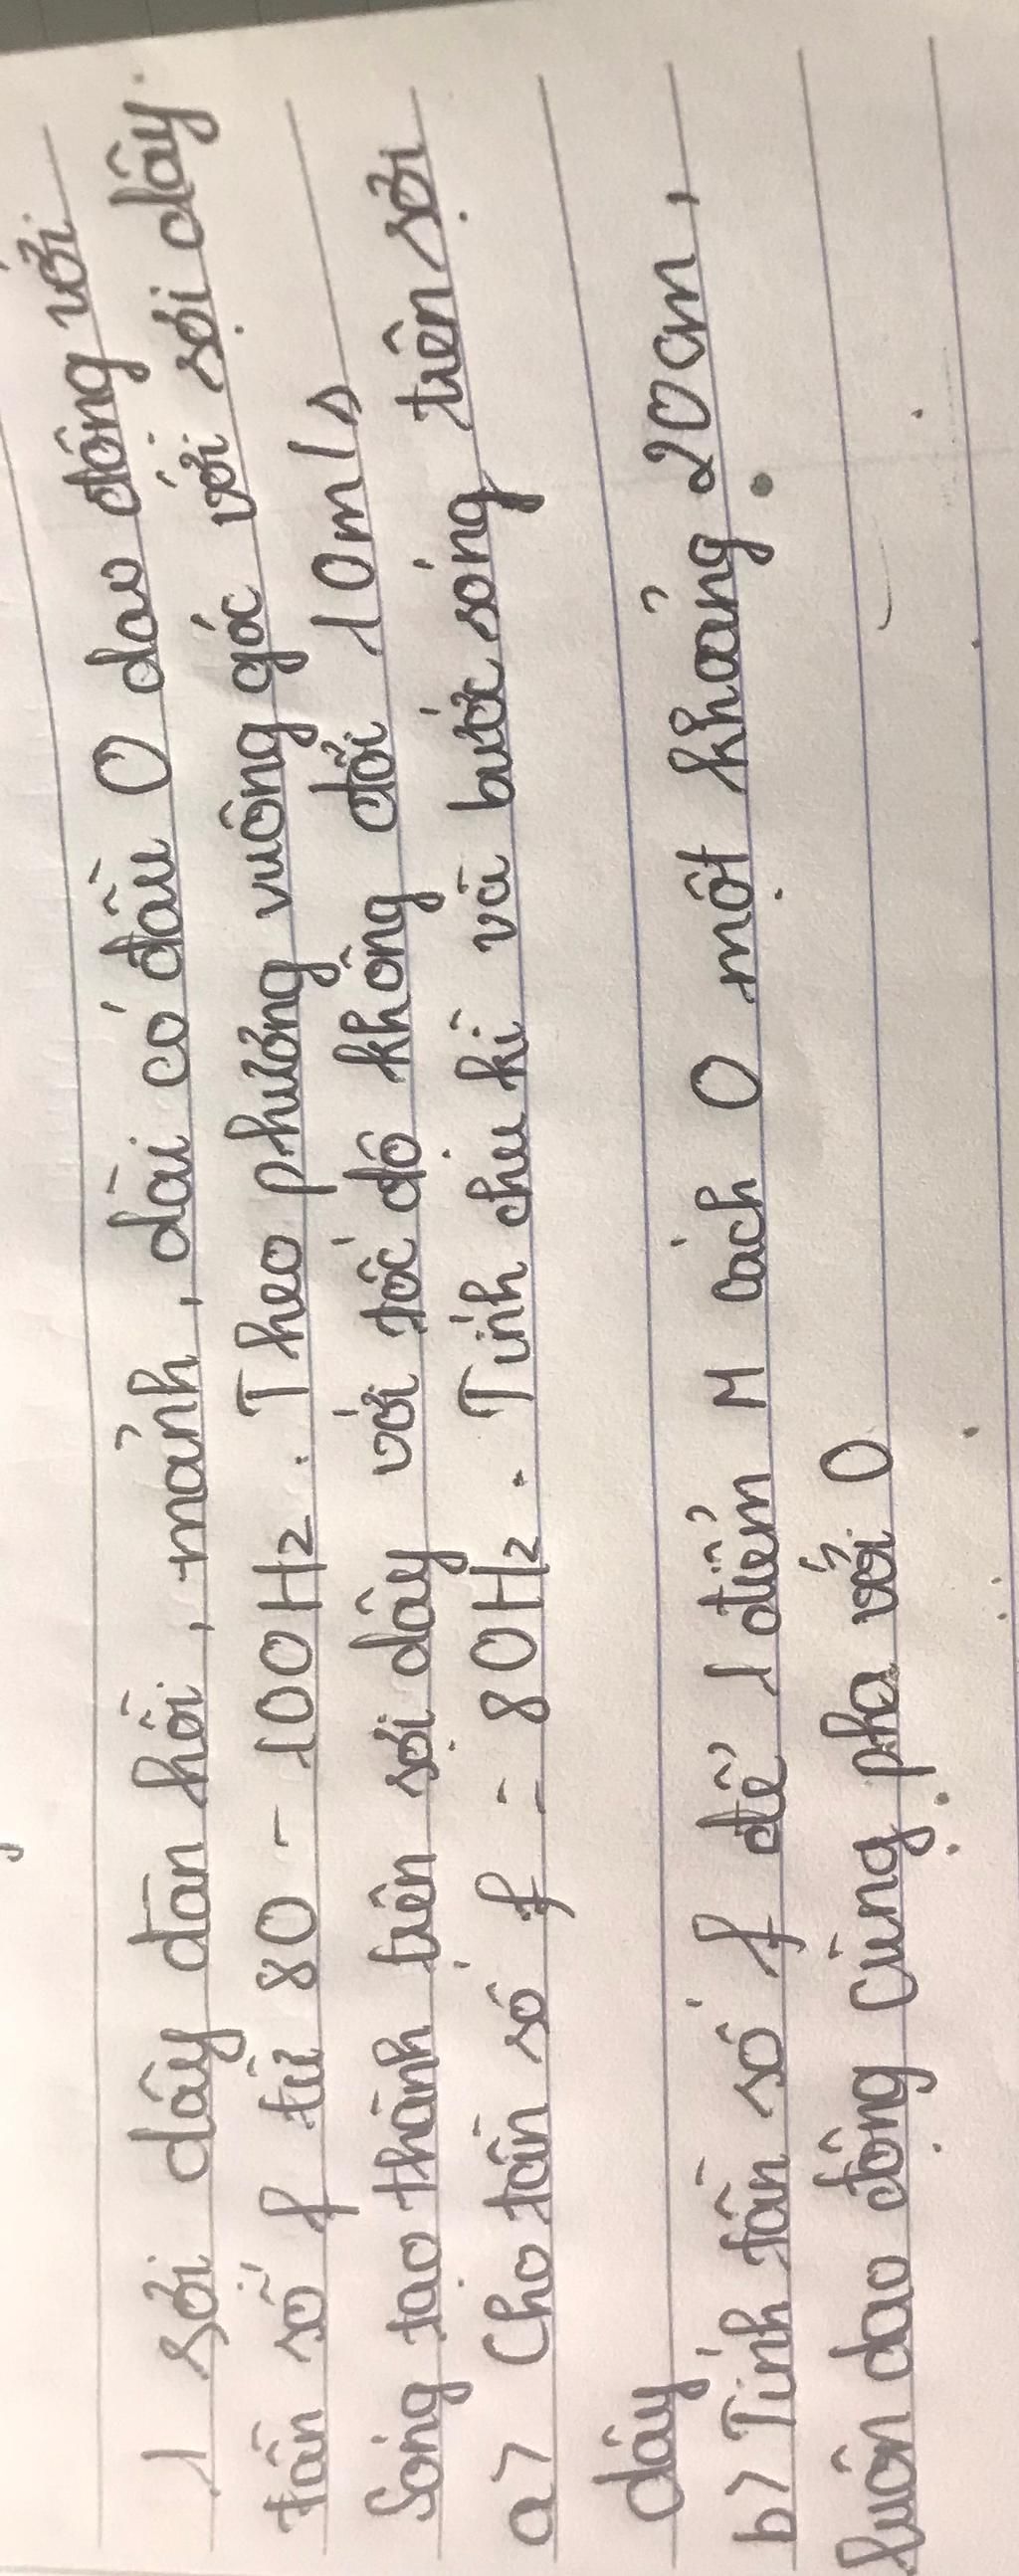 1 sợi dây đàn hồi, mảnh, dài có đầu O dao động với
tần số f từ 80 - 100Hz. Theo phương vuông góc với sợi dây.
Sóng tạo thành trên sợi dây với tốc độ không đổi 10m/s
a> Cho tần số f = 80Hz. Tính chu kì và bước sóng trên sợi
dây
b> Tính tần số f để 1 điểm M cách O một khoảng 20cm,
luôn dao động cùng pha với O